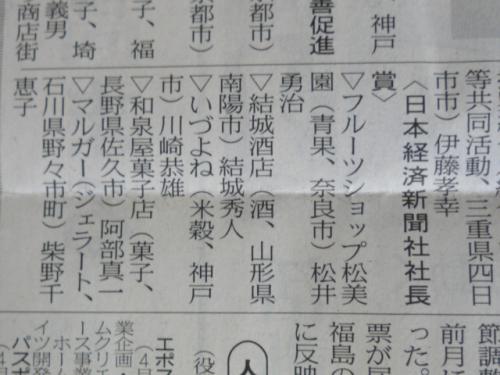 、神戸
善促進
都市）
京都市）
子、福
義男
子、埼
商店街
等共同活動、三重県四日
市市）伊藤孝幸
〈日本経済新聞社社長
賞〉
▽フルーツショップ松美
園（青果、奈良市）松井
勇治
▽結城酒店（酒、山形県
南陽市）結城秀人
▽いづよね（米穀、神戸
市）川崎恭雄
▽和泉屋菓子店（菓子、
長野県佐久市）阿部真一
▽マルガー（ジェラート、
石川県野々市町）柴野千
恵子
節調整
前月に
った。
票が居
福島の
に反映
人
（役
エポス
（4月
業企画・
ムクリエ
ース事業
ホーム
イツ開発
パスポ
（4月